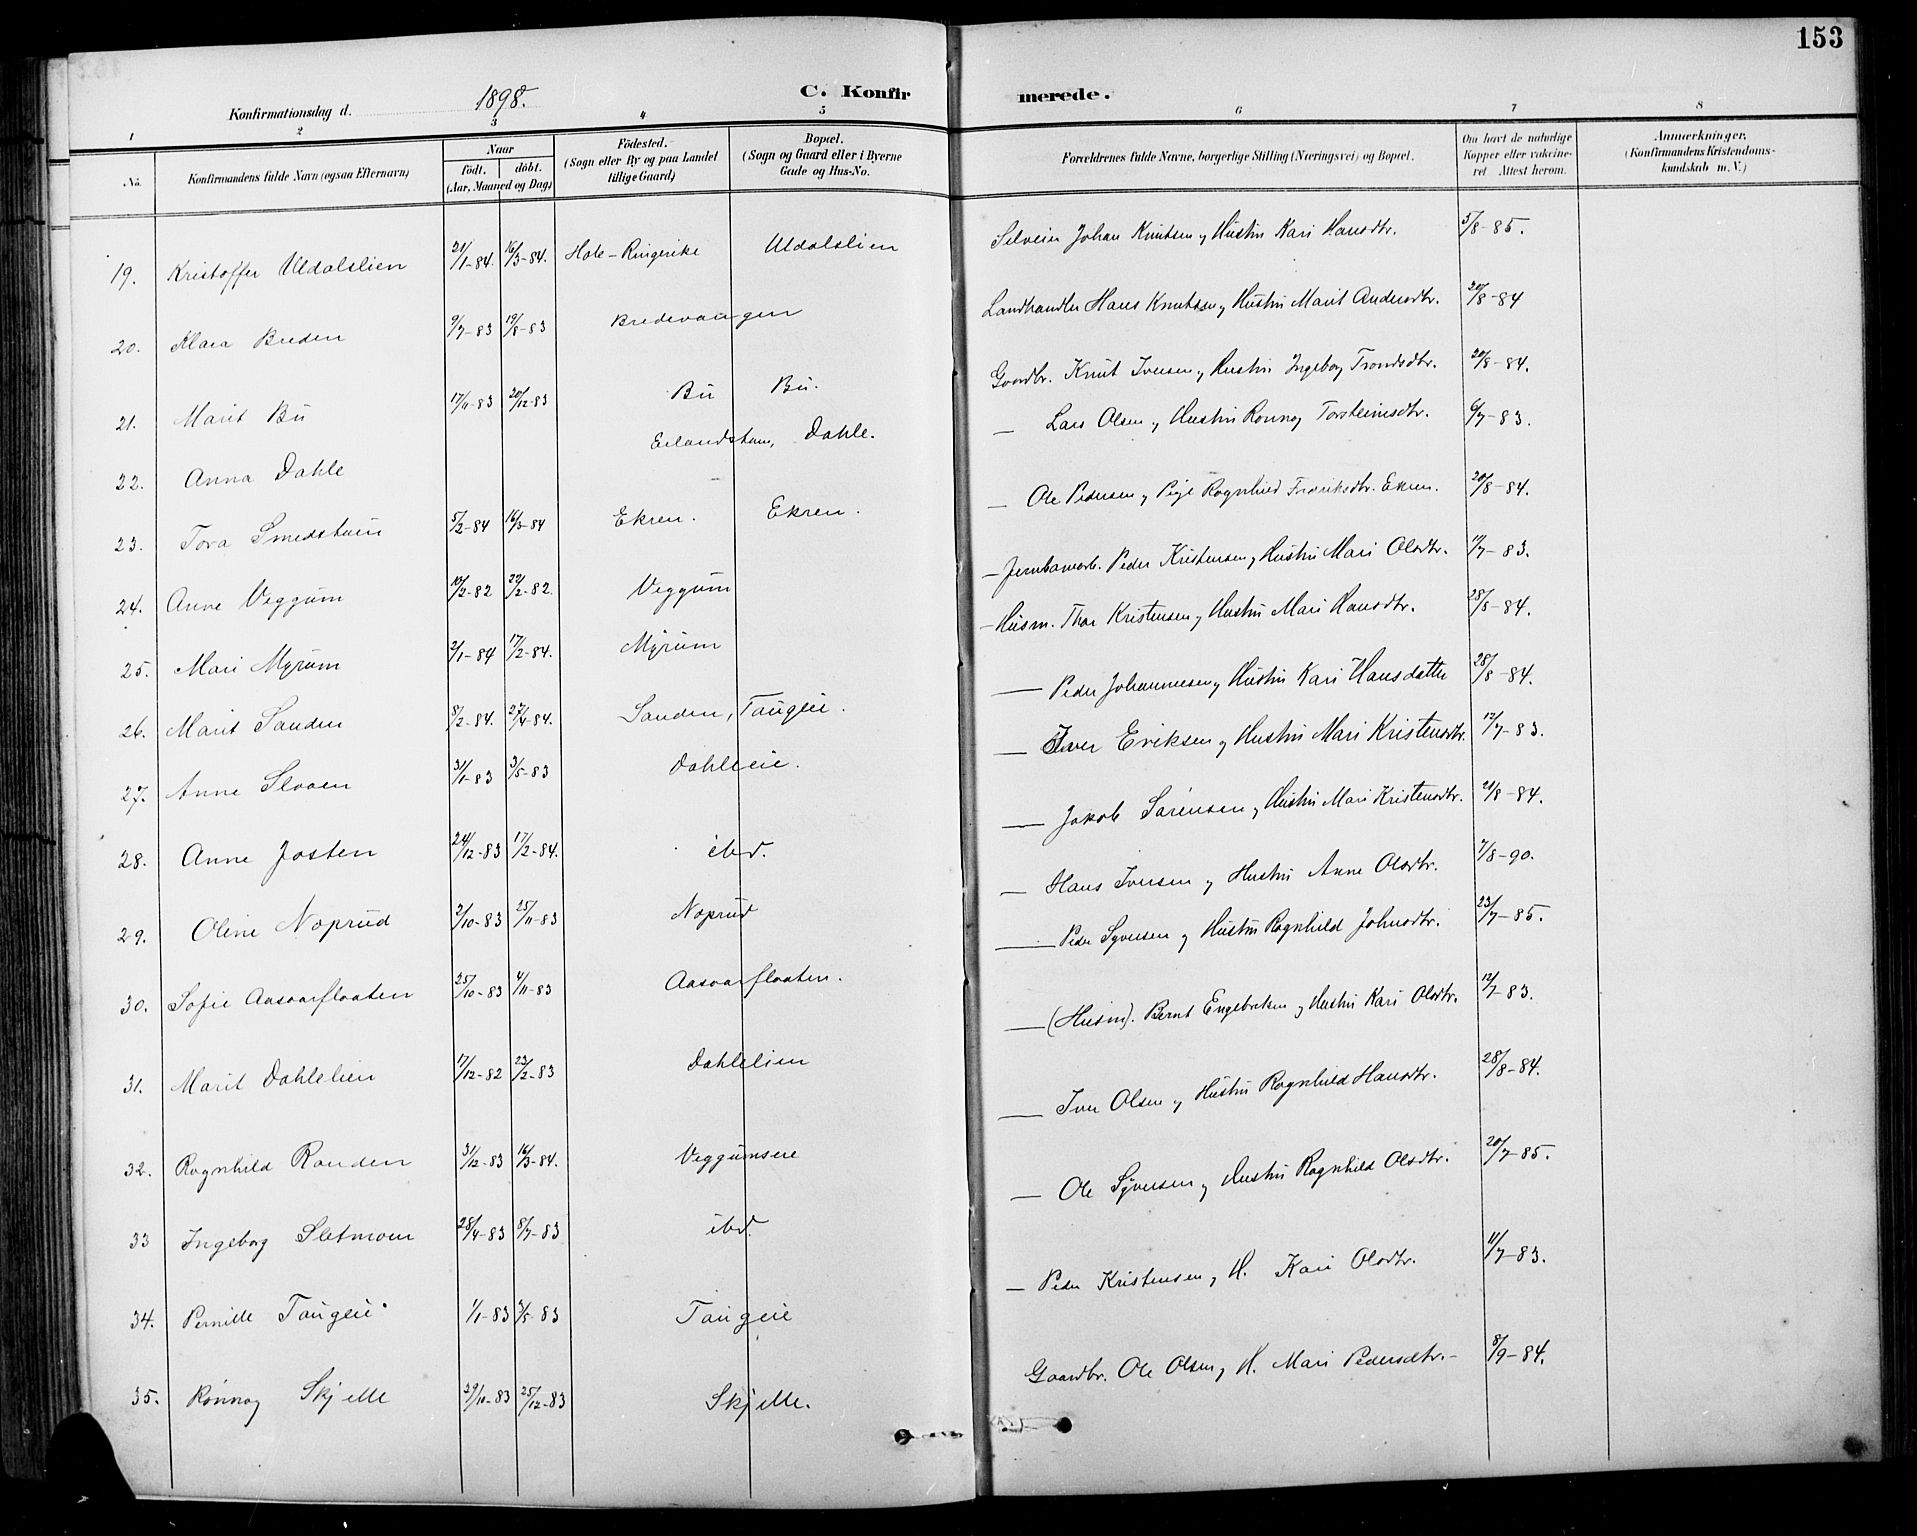 153
Konfirmationsdag d. 1898.
C. Konfir merede.
1 2 3 4 5 6 7 8
No. Konfirmandens fulde Navn (ogsaa Efternavn) Naar födt. döbt. (Aar, Maaned og Dag) Födested. (Sogn eller By og paa Landet tillige Gaard) Bopæl. (Sogn og Gaard eller i Byerne Gade og Hus-No. Forældrenes fulde Navne, borgerlige Stilling (Næringsvei) og Bopæl. Om havt de naturlige Kopper eller vakcineret Attest herom. Anmærkninger, (Konfirmandens Kristendomskundskab m. V.)
19. Kristoffer Uldalslien 21/1-84. 16/3-84. Hole-Ringerike Uldalslien Selveier Johan Knutsen og Hustru Kari Hansdtr. 5/8-85.
20. Klara Breden 9/7-83 19/8-83 Bredevangen Landhandler Hans Knutsen og Hustru Marit Andersdtr. 20/8-84
21. Marit Bu 17/11-83 20/12-83 Bu Bu. Gaardbr. Knut Iversen og Hustru Ingeborg Trondsdtr. 20/8-84.
22. Anna Dahle Erlandstuen, Dahle. — Lars Olsen og Hustru Rønnog Torsteinsdtr. 6/7-83.
23. Tora Smedstuen 5/2-84 16/3-84 Ekren. Ekren. — Ole Pedersen og Pige Ragnhild Fredriksdtr. Ekren. 20/8-84.
24. Anne Veggum 10/2-82 22/2-82. Veggum — Jernbanearb. Peder Kristensen og Hustru Mari Olsdtr. 11/7-83.
25. Mari Myrum 2/1-84 17/2-84. Myrum — Husm. Thor Kristensen og Hustru Mari Hansdtr. 28/8-84.
26. Marit Sanden 8/2-84. 27/4-84. Sanden, Taugeie. — Peder Johannesen og Hustru Kari Hansdatter 28/8-84.
27. Anne Sloaen 31/1-83 3/5-83 Dahleeie. — Iver Eriksen og Hustru Mari Kristensdtr. 12/7-83.
28. Anne Josten 24/12-83 17/2-84. ibd. — Jakob Sørensen og Hustru Mari Kristensdtr. 21/8-84.
29. Oline Noprud 2/10-83 25/11-83 Noprud — Hans Iversen og Hustru Anne Olsdtr. 7/8-90.
30. Sofie Aasoarflaaten 25/10-83 4/11-83 Aasoarflaaten. — Peder Syversen og Hustru Ragnhild Johnsdtr. 23/7-85.
31. Marit Dahlelien 17/12-82 23/2-83 Dahlelien — (Husm). Bernt Engebretsen og Hustru Kari Olsdtr. 12/7-83.
32. Ragnhild Randen 31/12-83 16/3-84. Veggumseie — Iver Olsen og Hustru Ragnhild Hansdtr. 28/8-84.
33 Ingeborg Sletmoen 28/4-83 8/7-83 ibd. — Ole Syversen og Hustru Ragnhild Olsdtr. 20/7-85.
34. Pernille Taugeie 1/1-83 3/5-83 Taugeie — Peder Kristensen og H. Kari Olsdtr. 11/7-83.
35. Rønnog Skjelle 29/10-83 25/12-83 Skjelle. Gaardbr. Ole Olsen og H. Mari Pedersdtr.- 8/9-84.